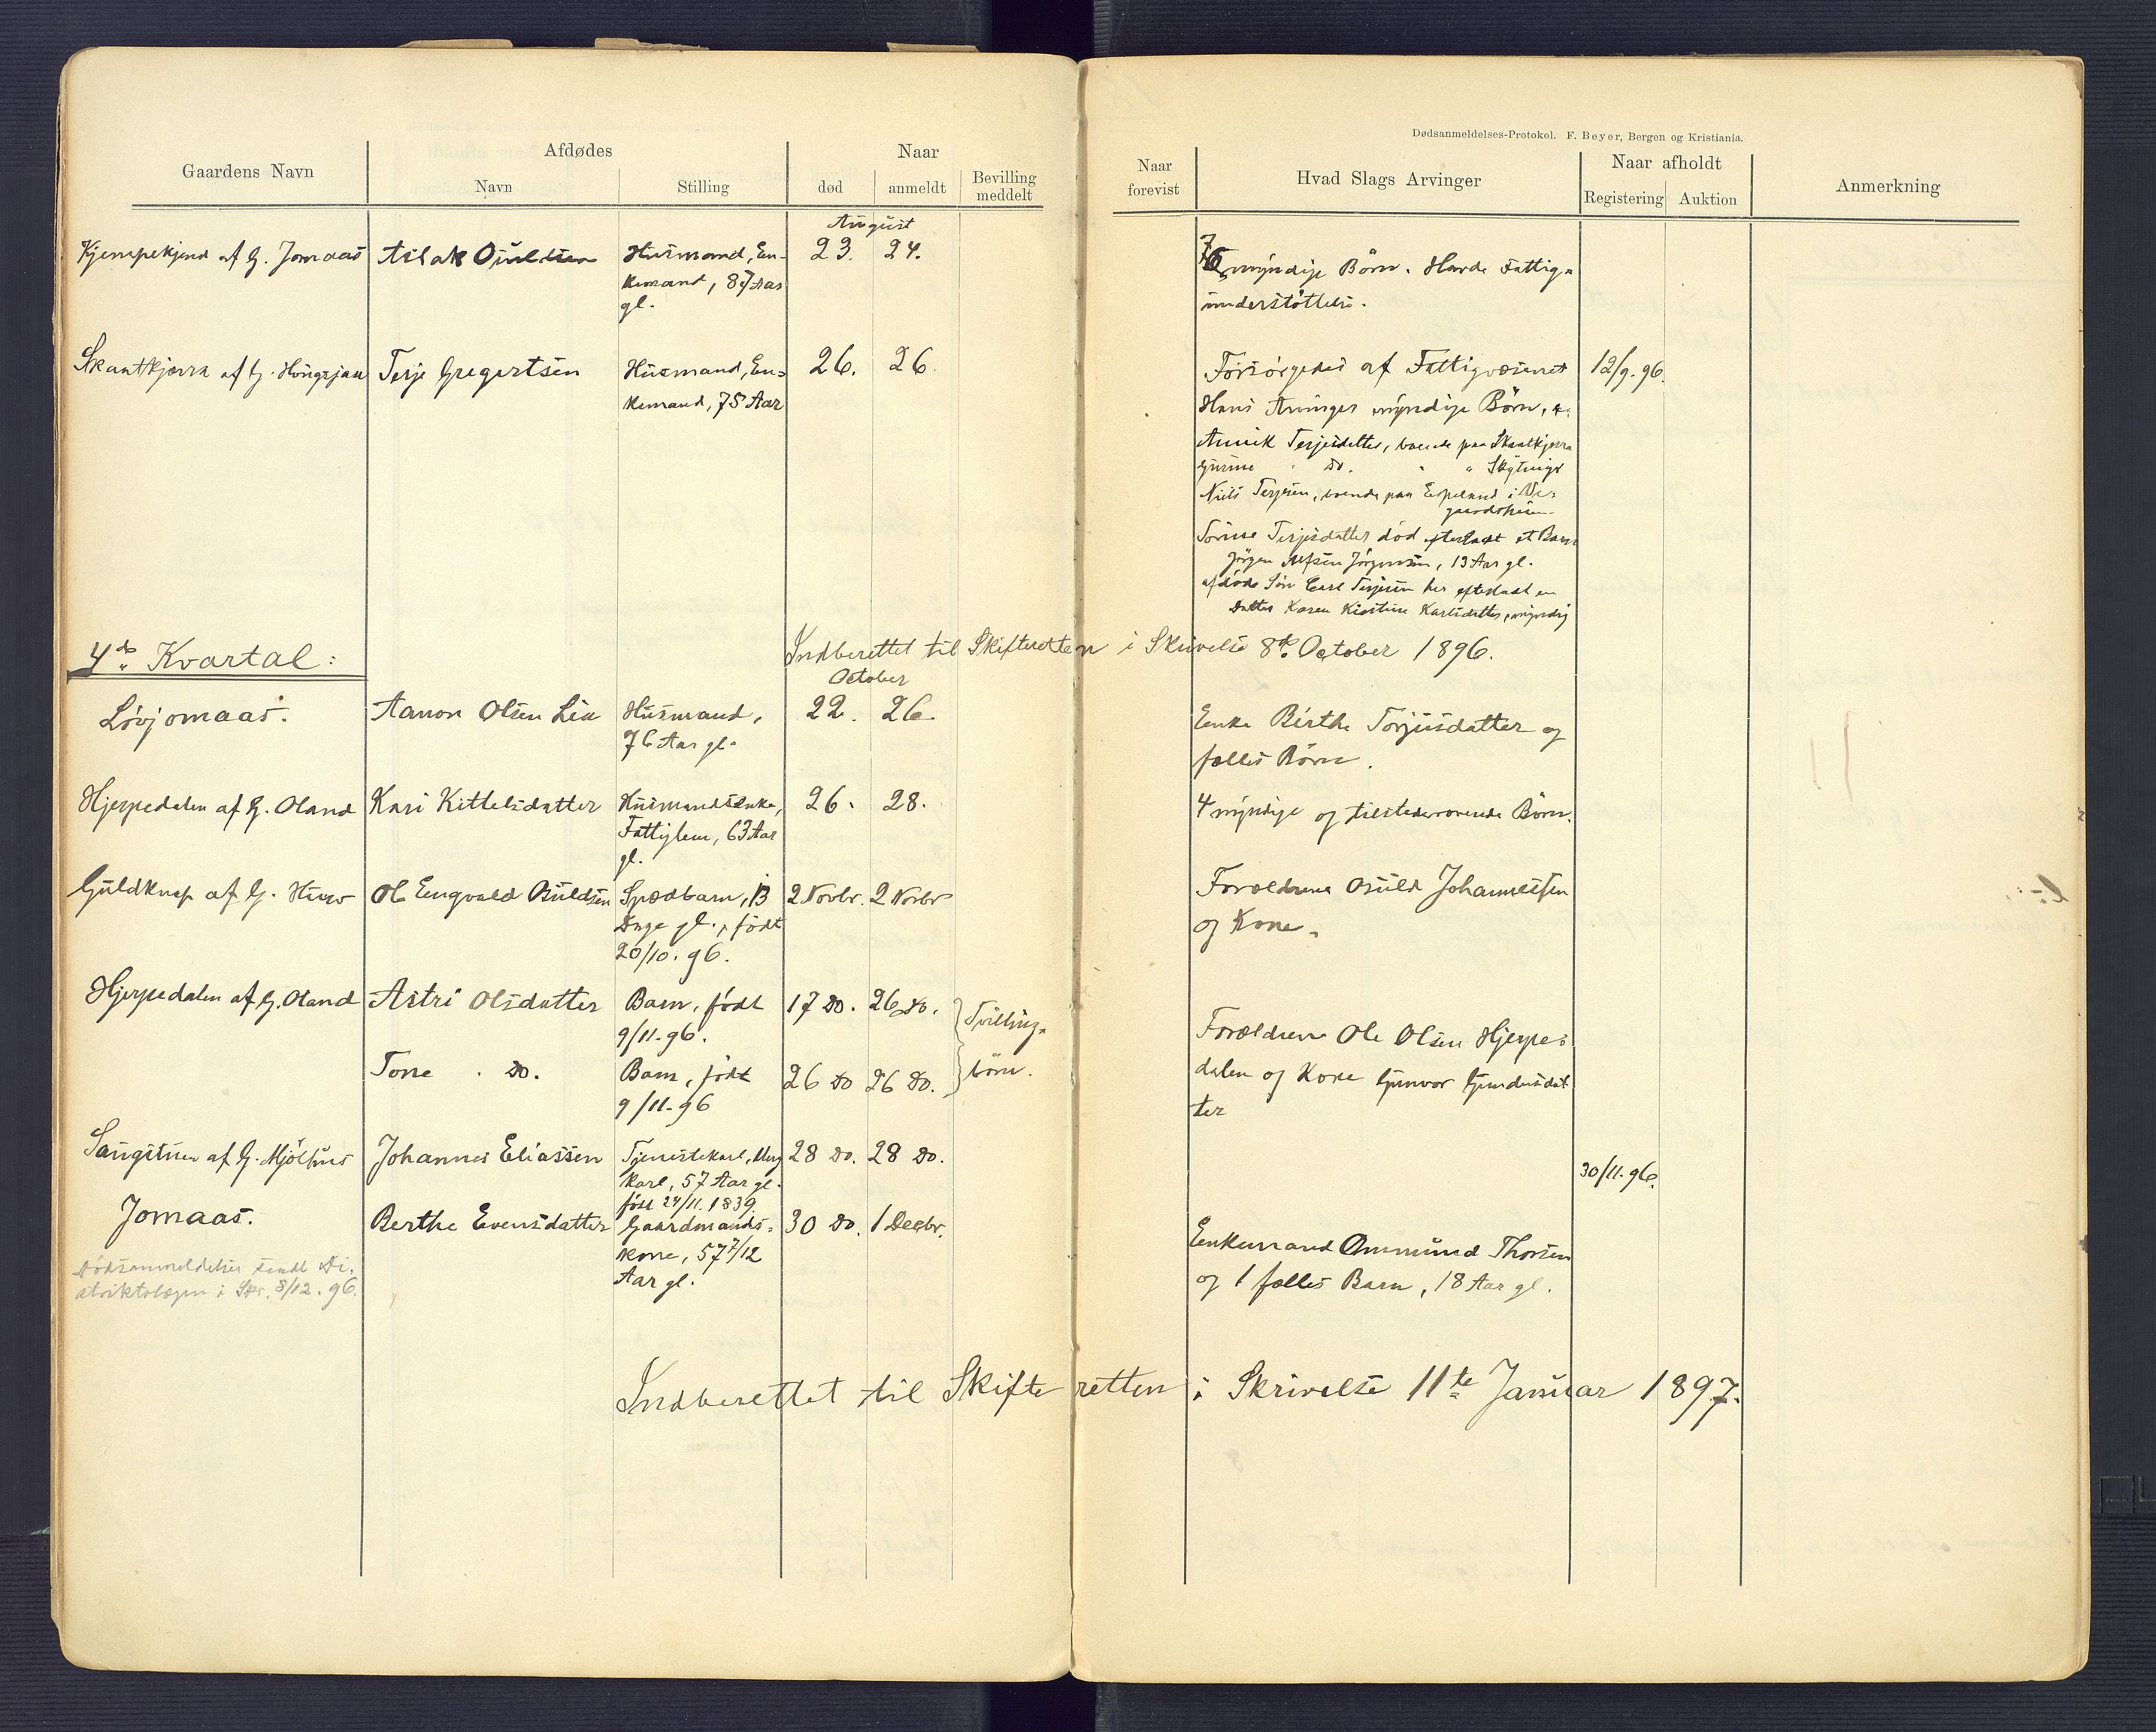 Dødsanmeldelses-Protokol. F. Beyer, Bergen og Kristiania.
Gaardens Navn
Afdødes
Navn
Stilling
Naar
død
anmeldt
Bevilling
meddelt
Naar
forevist
Hvad Slags Arvinger
Naar afholdt
Registering
Auktion
Anmerkning
August
Kjempekjend af G. Jomaas
Aslak
Husmand, En-
kemand, 87 Aar
gl.
23. 24.
7 myndige Børn. Havde Fattig-
understøttelse.
Skaatkjærra af G.
Terje Gregertsen
Husmand, En-
kemand, 75 Aar
26. 26
Forsørgedes af Fattigvæsenet
12/9. 96.
Hans Arvinger myndige Børn,
Annik Terjesdatter, boende paa Skaatkjærra
Gurine Do. "
Niels Terjesen, boende paa Espeland i Ve-
gaardsheien
Torine Terjesdatter død efterladt et Barn
Jørgen Alfsen Jørgensen, 13 Aar gl.
afdøde Søn Carl Terjesen har efterladt en
Datter Karen Kirstine Karlsdatter, myndig
Indberettet til Skifteretten i Skrivelse 8de October 1896.
4de Kvartal:
October
Løvjomaas.
Aanon Olsen Lia
Husmand,
76 Aar gl.
22. 26.
Enke Birthe Torjusdatter og
fælles Børn.
Hjerpedalen af G. Oland
Kari Kittelsdatter
Husmandsenke,
Fattiglem, 63 Aar
gl.
26. 28.
4 myndige og tilstedeværende Børn.
Guldknap af G.
Ole Engvald Osuldsen
Spædbarn, 13
Dage gl., født
20/10. 96.
2 Novbr. 2 Novbr
Forældrene Osuld Johannessen
og Kone.
Hjerpedalen af G. Oland
Astri Olsdatter
Barn, født
9/11. 96.
17 Do. 26 Do.
Tvilling-
børn.
Tone Do.
Barn, født
9/11. 96
26 Do 26 Do.
Forældrene Ole Olsen Hjerpe-
dalen og Kone Gunvor Gundersdat
ter
Saugstuen af G. Mjølhus
Johannes Eliassen
Tjenestekarl, Ung
karl, 57 Aar gl.
født 24/11. 1839.
28 Do. 28 Do.
30/11. 96.
Jomaas.
Berthe Evensdatter
Gaardmands-
kone, 57 7/12
Aar gl.
30 Do. 1 Decbr.
Enkemand Ommund Thorsen
og 1 fælles Barn, 18 Aar gl.
Dødsanmeldelser sendt Di-
striktslægen i Skr. 8/12. 96.
Indberettet til Skifteretten i Skrivelse 11te Januar 1897.